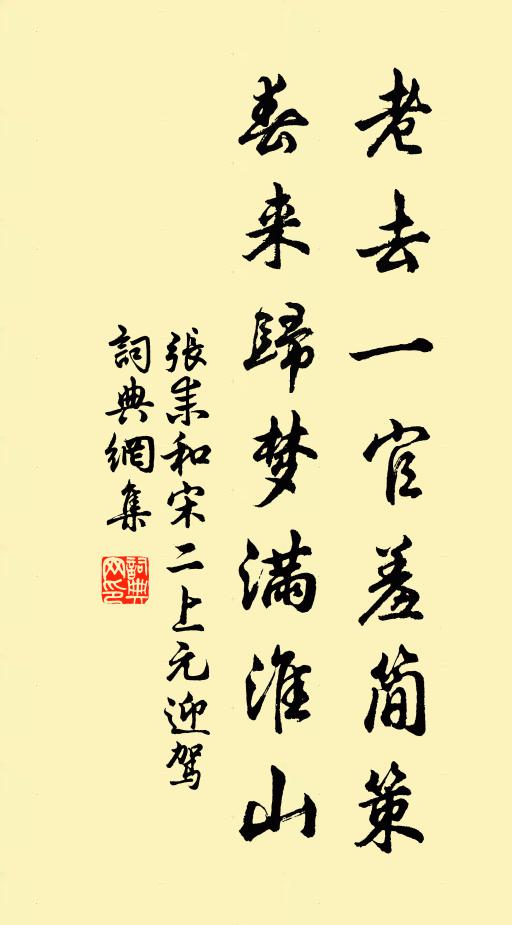 老去一官羞简策
春来歸梦满淮山
張耒和宋二上元迎驾
詞典網集
詞典网印